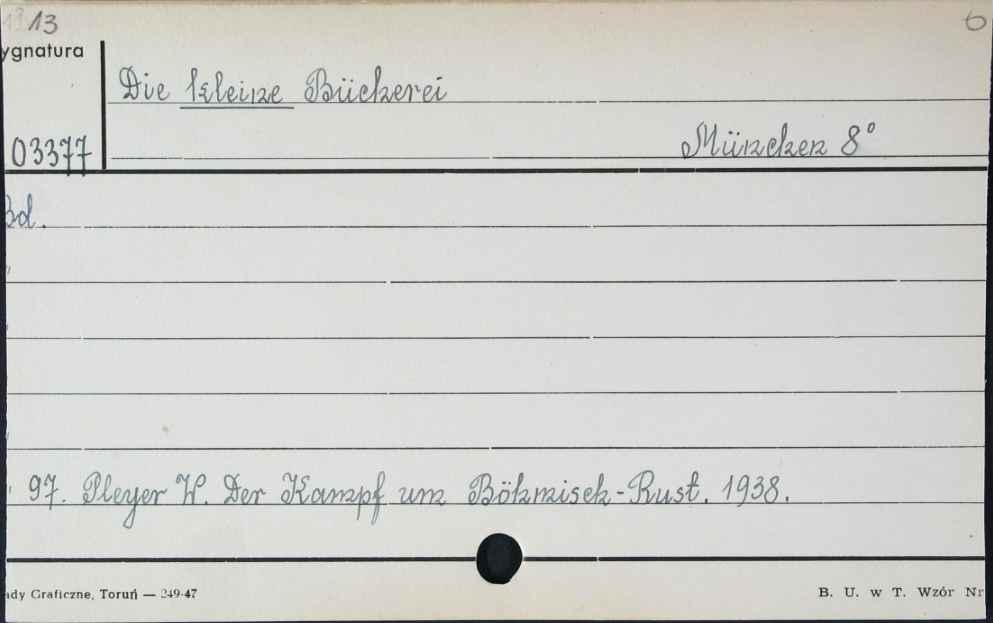 13 13 6
ygnatura
Die kleine Bücherei
03377 München 8°
Bd.
"
"
"
"
" 97. Pleyer W. Der Kampf um Böhmisch-Rust. 1938.
ady Graficzne, Toruń — 249-47 B. U. w T. Wzór Nr